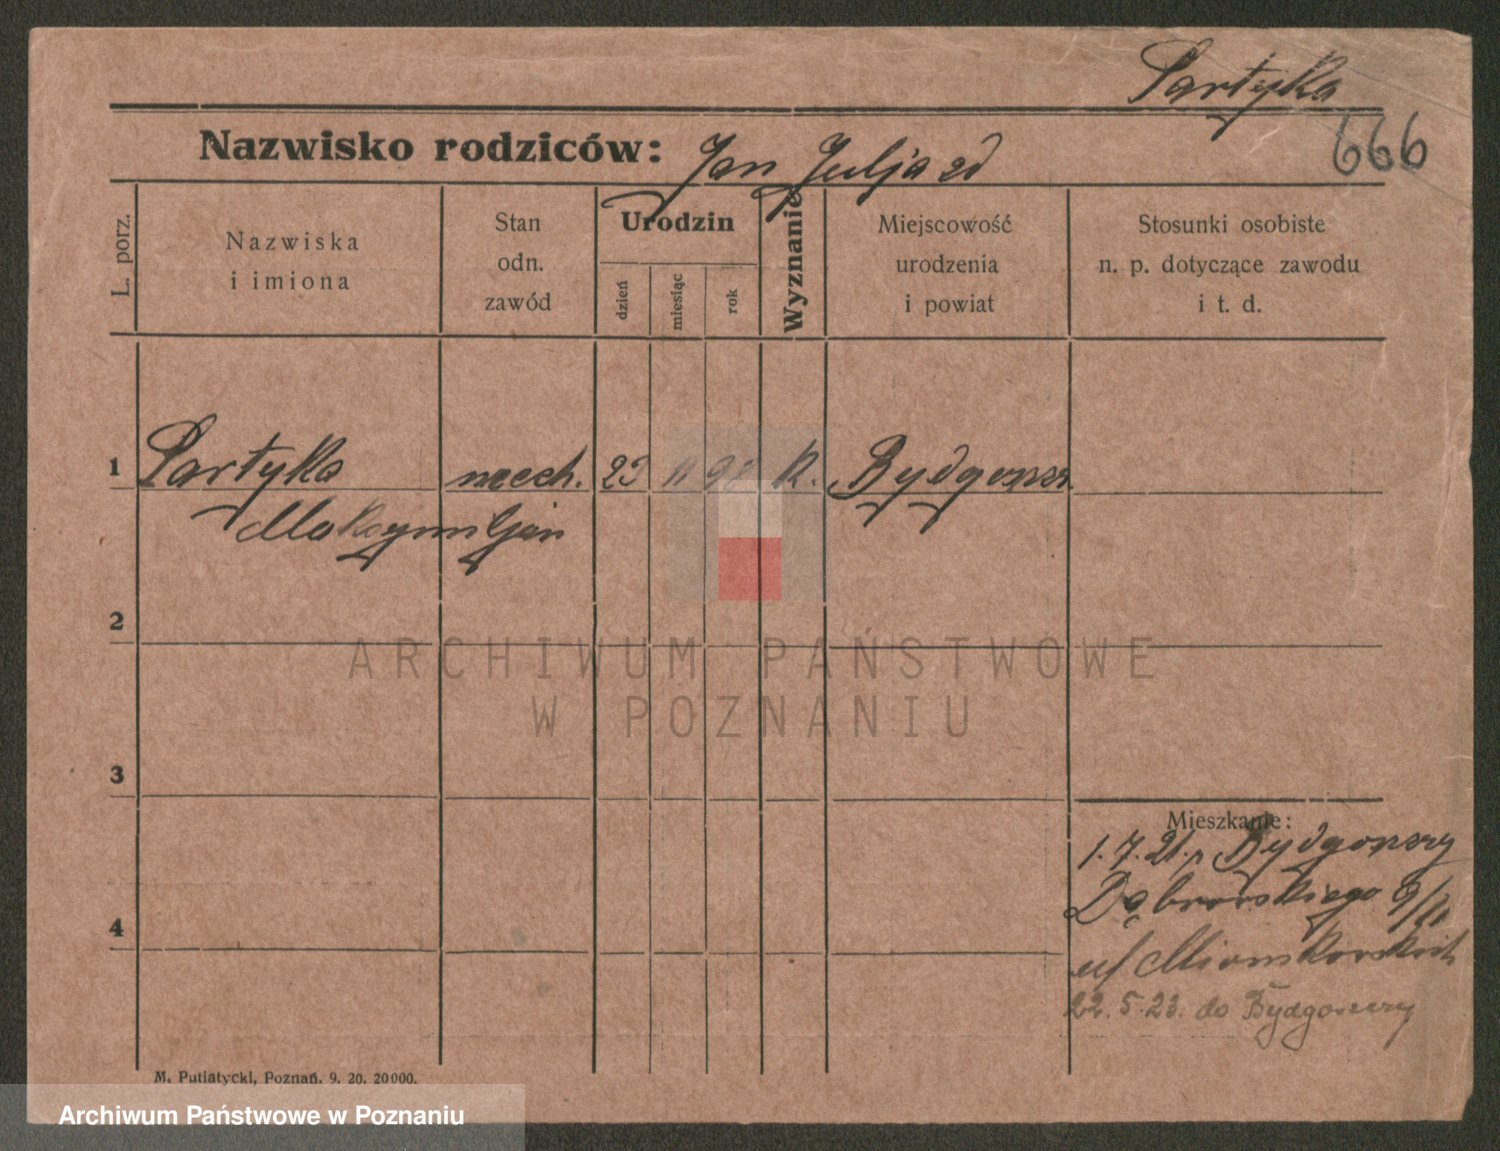 Partyka
666
Nazwisko rodziców: Jan Julja zd
L. porz.
Nazwiska
i imiona
Stan
odn.
zawód
Urodzin
dzień
miesiąc
rok
Wyznanie
Miejscowość
urodzenia
i powiat
Stosunki osobiste
n. p. dotyczące zawodu
i t. d.
1 Partyka mech. 23 K. Bydgoszcz
Maksymiljan
2
3
4
Mieszkanie:
1.7.21. Bydgoszczy
Dąbrowskiego
22.5.23. do Bydgoszczy
M. Putiatycki, Poznań. 9. 20. 20000.
ARCHIWUM PAŃSTWOWE
W POZNANIU
Archiwum Państwowe w Poznaniu